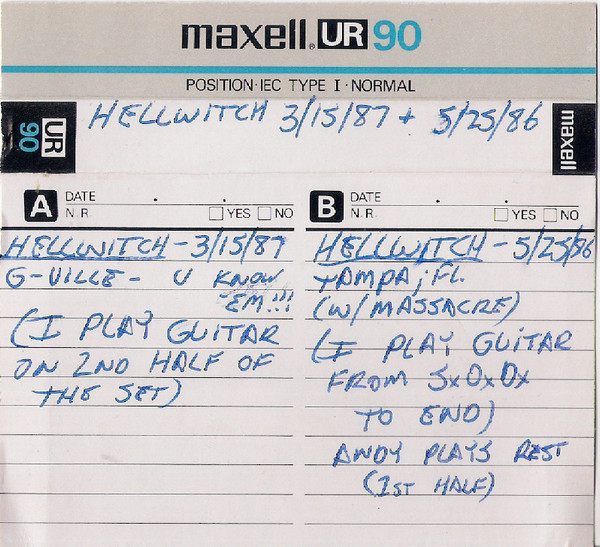 maxell® UR 90
POSITION·IEC TYPE I·NORMAL
UR 90
HELLWITCH 3/15/87 + 5/25/86
maxell
A DATE . .
N.R □ YES □ NO
HELLWITCH - 3/15/87
G-VILLE - U KNOW
'EM!!!
(I PLAY GUITAR
ON 2ND HALF OF
THE SET)
B DATE . .
N.R □ YES □ NO
HELLWITCH - 5/25/86
TAMPA, FL.
(W/ MASSACRE)
(I PLAY GUITAR
FROM SxOxDx
TO END)
ANDY PLAYS REST
(1ST HALF)